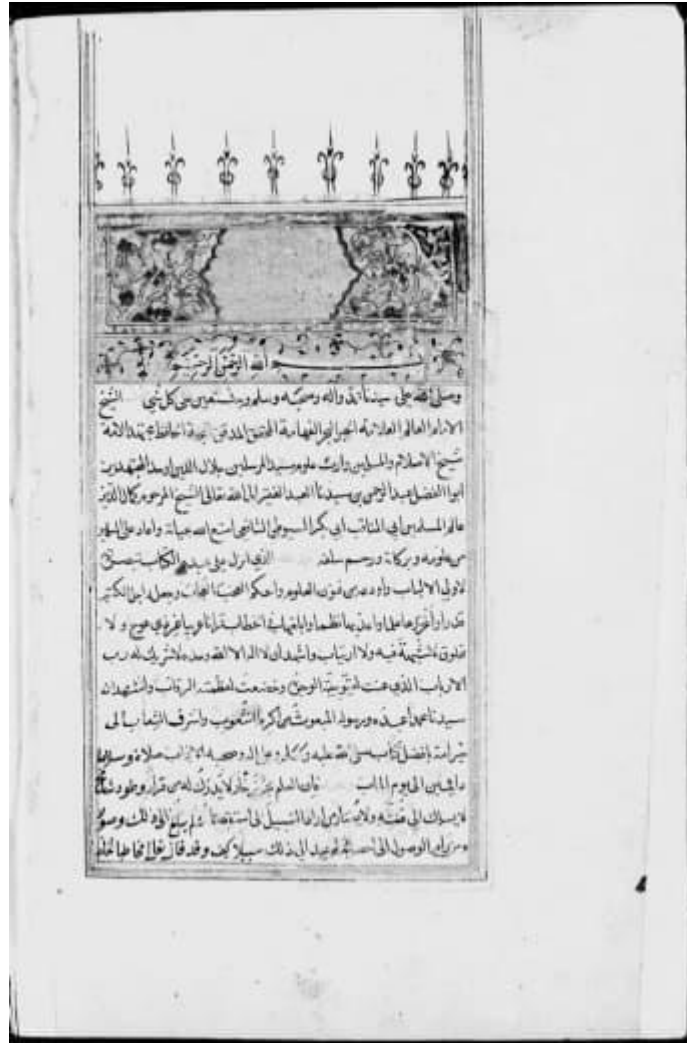 بسم الله الرحمن الرحيم
وصلى الله على سيدنا محمد واله وصحبه وسلم وبه نستعين على كل شي الشيخ
الامام العالم العلامة الحبر البحر الفهامة المحقق المدقق الحجة الحافظ مجتهد الامة
شيخ الاسلام والمسلمين وارث علوم سيد المرسلين جلال الدين اوحد المجتهدين
ابوا الفضل عبد الرحمن بن سيدنا العبد الفقير الى الله تعالى الشيخ المرحوم كمال الدين
عالم المسلمين ابي المناقب ابي بكر السيوطي الشافعي امتع الله بحياته واعاد على المسلمين
من علومه وبركاته ورحم سلفه الذي انزل على عبده الكتاب تبصرة
لاولي الالباب واودعه من فنون العلوم والحكم العجب العجاب وجعله اجل الكتب
قدرا واغزرها علما واعذبها نظما وابلغها في الخطاب قرانا عربيا غير ذي عوج ولا
مخلوق لا شبهة فيه ولا ارتياب واشهد ان لا اله الا الله وحده لا شريك له رب
الارباب الذي عنت لقيوميته الوجوه وخضعت لعظمته الرقاب واشهد ان
سيدنا محمدا عبده ورسوله المبعوث من اكرم الشعوب واشرف الشعاب الى
خير امة بافضل كتاب صلى الله عليه وسلم وعلى اله وصحبه الانجاب صلاة وسلاما
دايمين الى يوم الماب فان العلم بحر زخار لا يدرك له من قرار وطود شامخ
لا يسلك الى قنته ولا يصار من اراد السبيل الى استقصائه لم يبلغ الى ذلك وصولا
ومن رام الوصول الى احصائه لم يجد الى ذلك سبيلا كيف وقد قال تعالى مخاطبا لخلقه